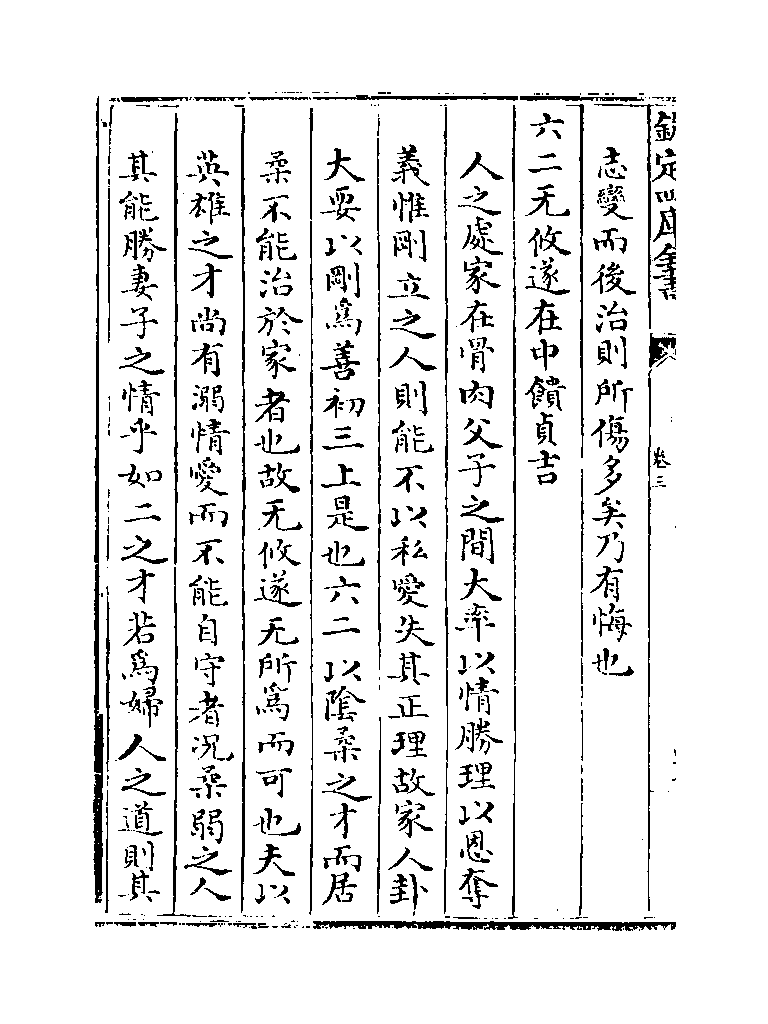 欽定四庫全書
卷三
志變而後治則所傷多矣乃有悔也
六二无攸遂在中饋貞吉
人之處家在骨肉父子之間大率以情勝理以恩奪
義惟剛立之人則能不以私愛失其正理故家人卦
大要以剛為善初三上是也六二以陰柔之才而居
柔不能治於家者也故无攸遂无所為而可也夫以
英雄之才尚有溺情愛而不能自守者况柔弱之人
其能勝妻子之情乎如二之才若為婦人之道則其